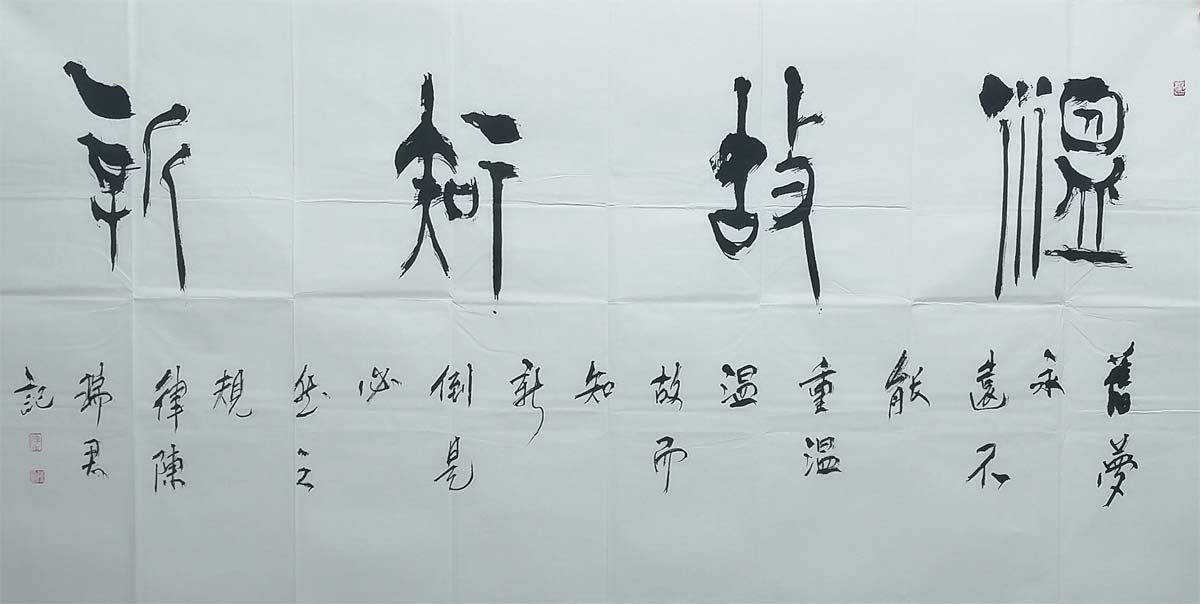 溫故知新
舊夢
永
遠不
能
重溫
温
故而
知
新
倒是
必
然之
規
律陳
瑞君
記